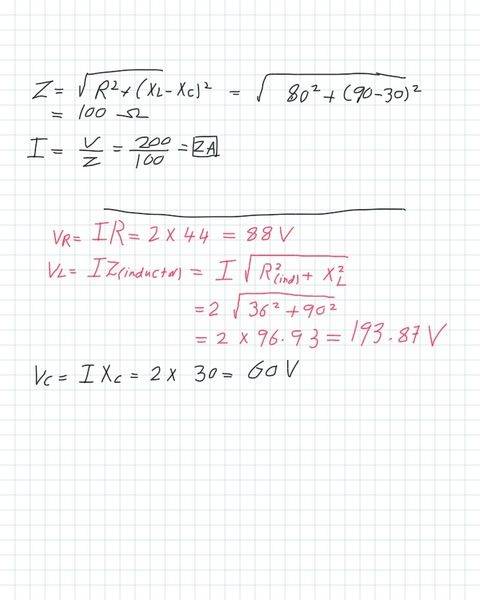 Z = √R²+(XL-XC)² = √80²+(90-30)²
= 100 Ω
I = V/Z = 200/100 = 2A
VR = IR = 2 × 44 = 88 V
VL = IZ(inductor) = I √R²(ind) + XL²
= 2 √36² + 90²
= 2 × 96.93 = 193.87 V
VC = I XC = 2 × 30 = 60 V